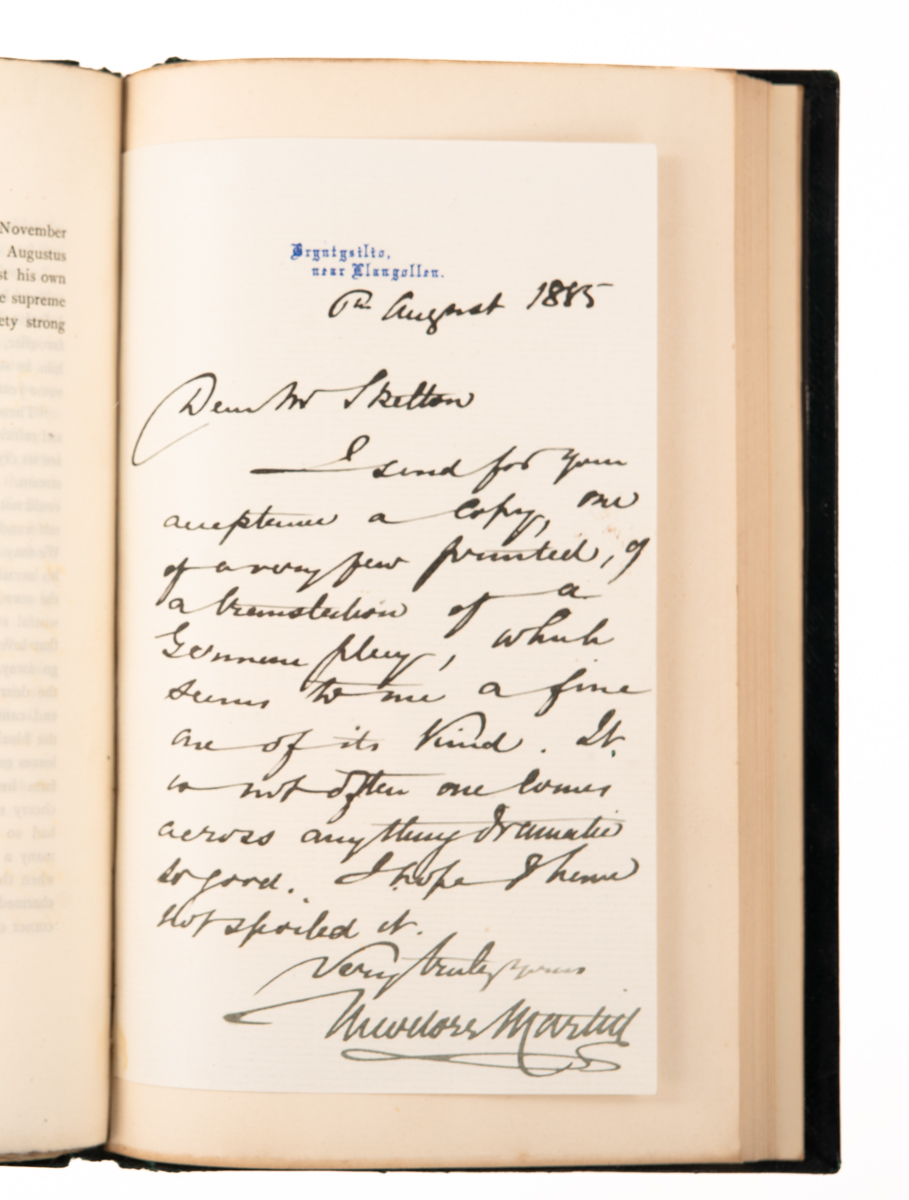 November
Augustus
st his own
e supreme
ety strong
Bryntysilio,
near Llangollen.
6th August 1885
Dear Mr Skelton
I send for your
acceptance a copy, one
of a very few printed, of
a translation of a
German play, which
seems to me a fine
one of its kind. It
is not often one comes
across anything dramatic
so good. I hope I have
not spoiled it.
Very truly yours
Theodore Martin